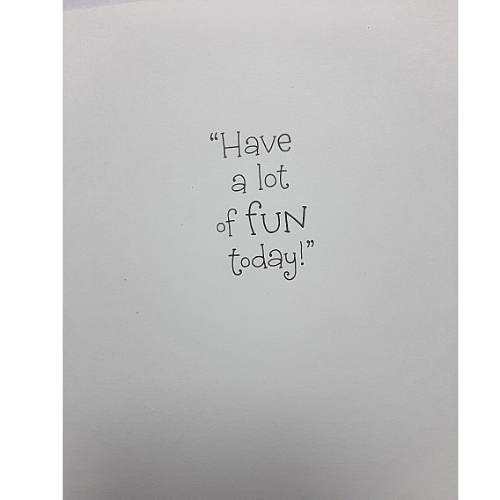 “Have
a lot
of fUN
today!”